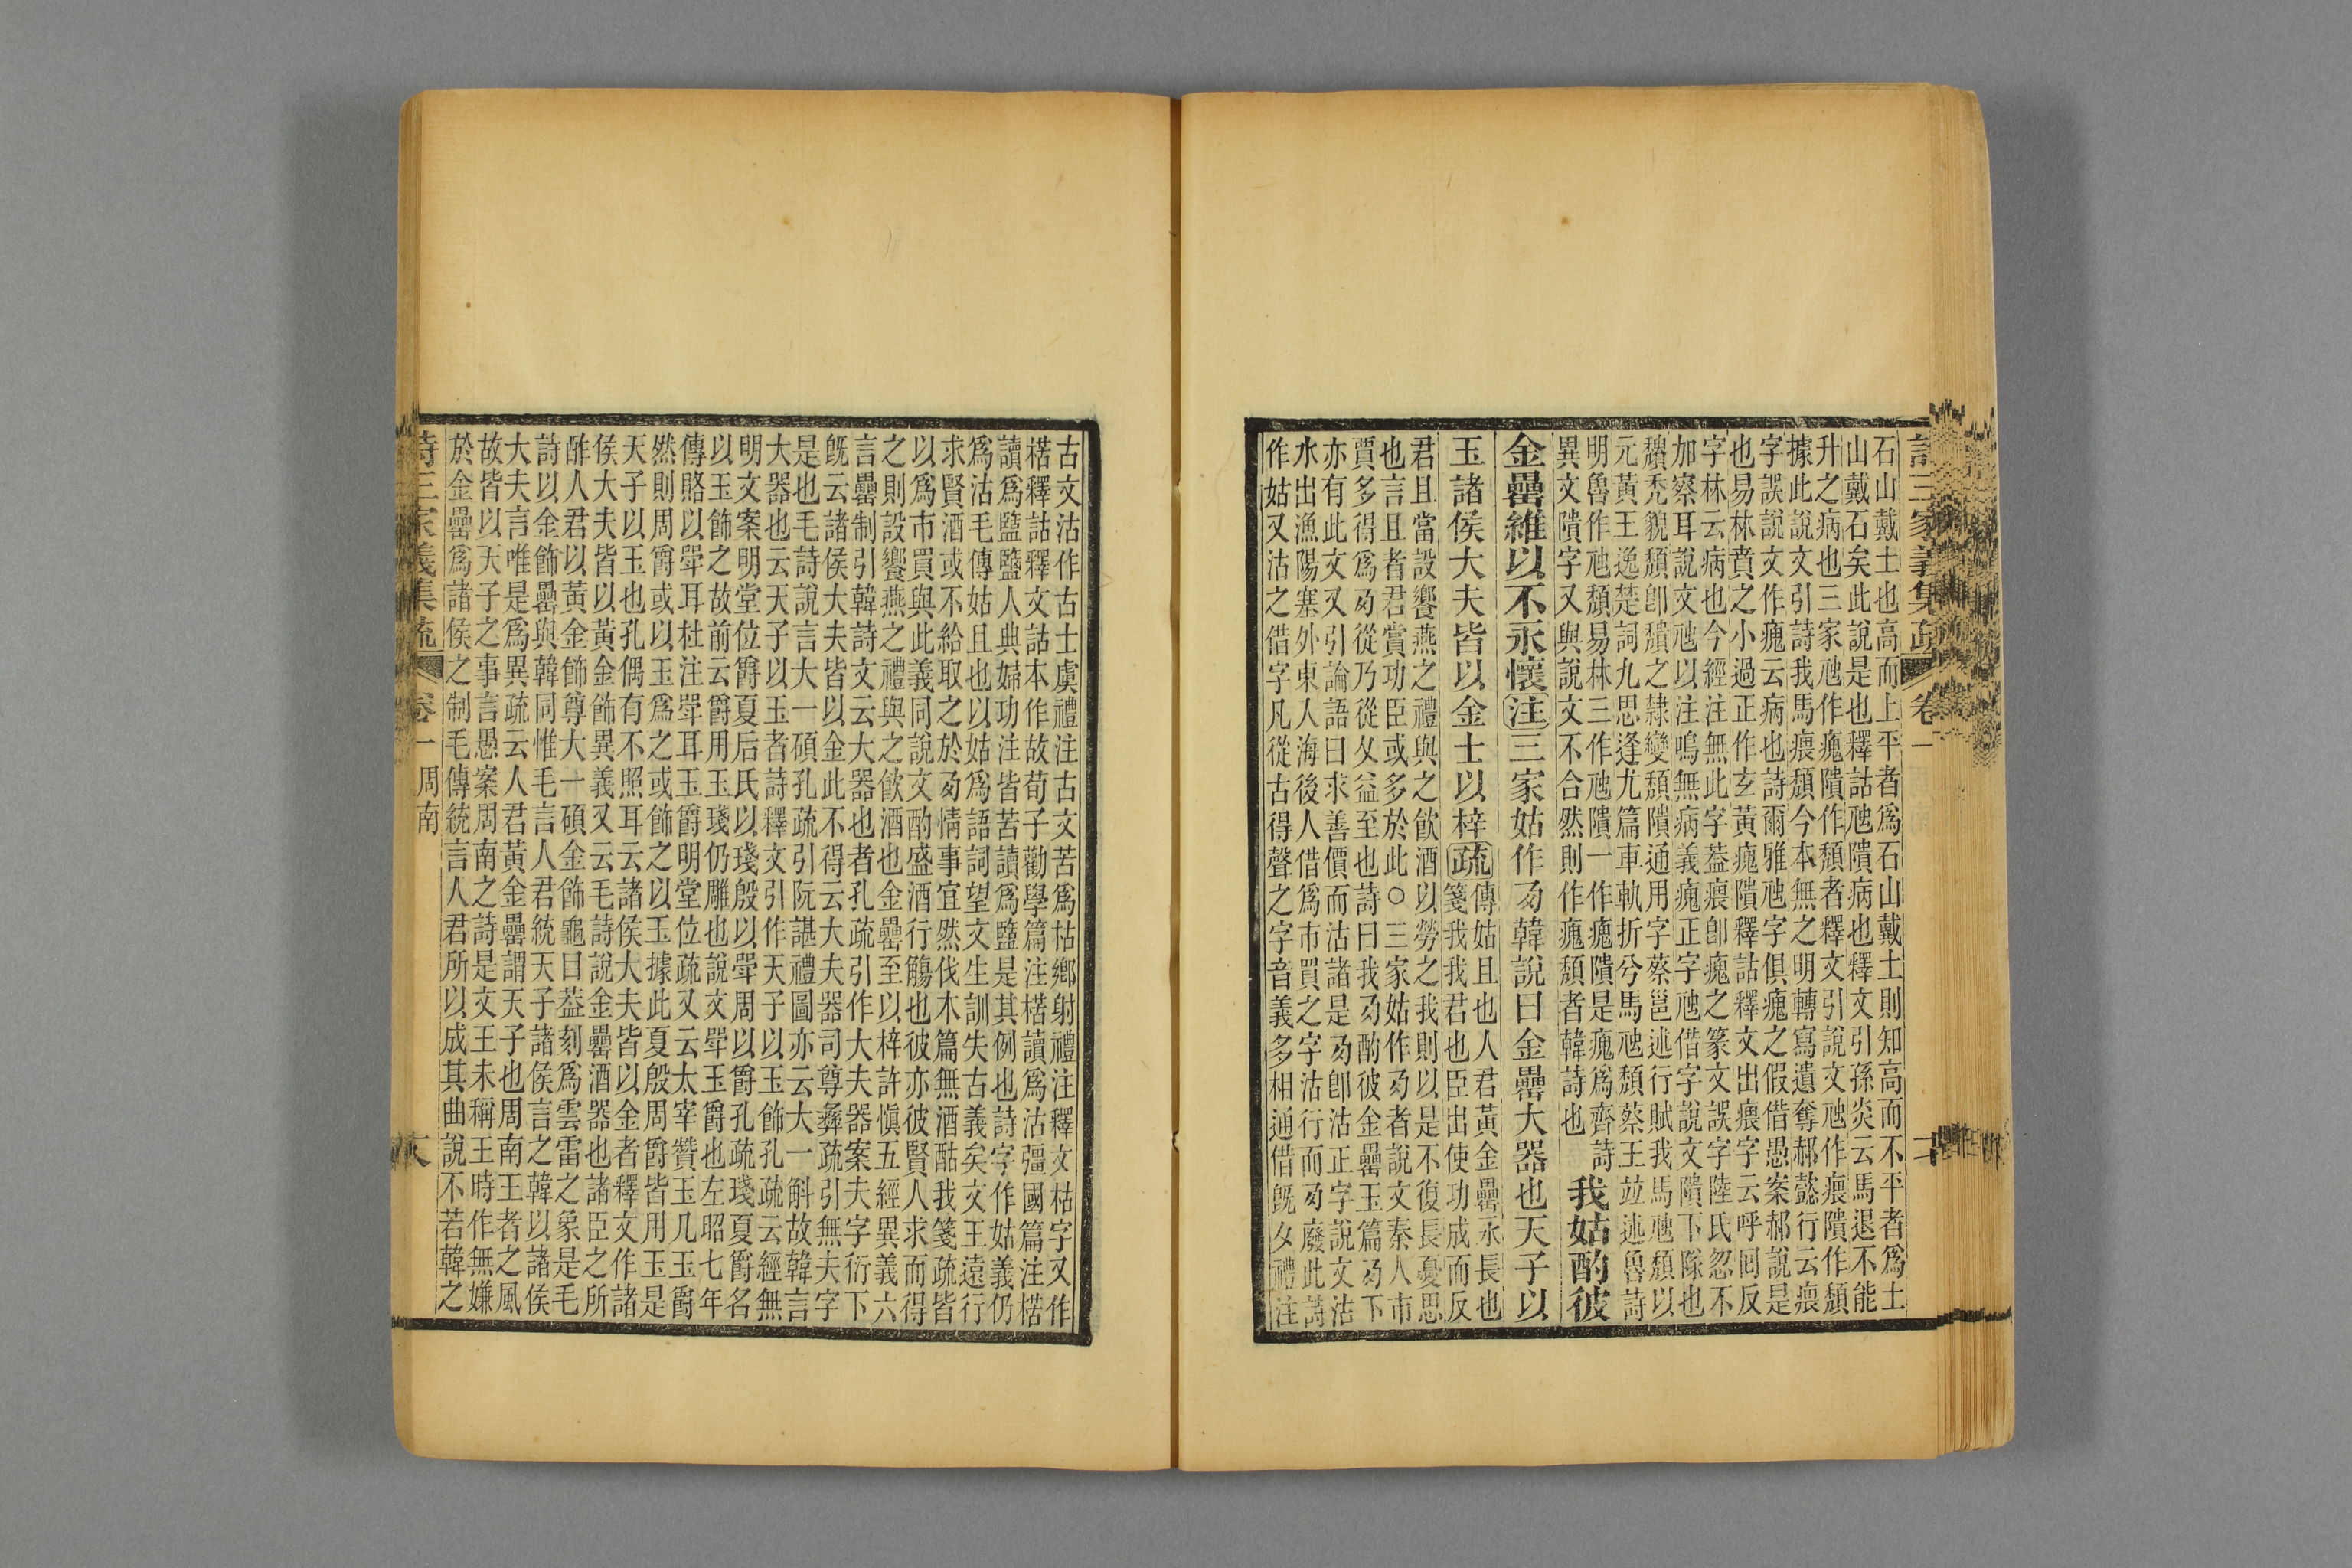 詩三家義集疏 卷一
石山戴土也高而上平者爲石山戴土則知高而不平者爲土
山戴石矣此說是也釋詁虺隤病也釋文引孫炎云馬退不能
升之病也三家虺作瘣隤作頹者釋文引說文虺作瘣隤作頹
據此說文引詩我馬瘣頹今本無之明轉寫遺奪郝懿行云瘣
字誤說文作瘣云病也詩爾雅虺字俱瘣之假借愚案郝說是
也易林賁之小過正作玄黃瘣隤釋詁釋文出瘣字云呼回反
字林云病也今經注無此字葢瘣卽瘣之篆文誤字陸氏忽不
加察耳說文虺以注鳴無病義瘣正字虺借字說文隤下隊也
穨禿貌頹卽穨之隸變頹隤通用字蔡邕述行賦我馬虺頹以
元黃王逸楚詞九思逢尤篇車軌折兮馬虺頹蔡王竝述魯詩
明魯作虺頹易林三作虺隤一作瘣隤是瘣爲齊詩
異文隤字又與說文不合然則作瘣頹者韓詩也
我姑酌彼
金罍維以不永懷注三家姑作夃韓說曰金罍大器也天子以
玉諸侯大夫皆以金士以梓疏
傳姑且也人君黃金罍永長也
箋我我君也臣出使功成而反
君且當設饗燕之禮與之飮酒以勞之我則以是不復長憂思
也言且者君賞功臣或多於此○三家姑作夃者說文秦人市
賈多得爲夃從乃從夂益至也詩曰我夃酌彼金罍玉篇夃下
亦有此文又引論語曰求善價而沽諸是夃卽沽正字說文沽
水出漁陽塞外東人海後人借爲市買之字沽行而夃廢此詩
作姑又沽之借字凡從古得聲之字音義多相通借旣夕禮注
古文沽作古士虞禮注古文苦爲枯鄉射禮注釋文枯字又作
楛釋詁釋文詁本作故荀子勸學篇注楛讀爲沽彊國篇注楛
讀爲盬鹽人典婦功注皆苦讀爲盬是其例也詩字作姑義仍
爲沽毛傳姑且也以姑爲語詞望文生訓失古義矣文王遠行
求賢酒或不給取之於夃情事宜然伐木篇無酒酤我箋疏皆
以爲市買與此義同說文酌盛酒行觴也彼亦彼賢人求而得
之則設饗燕之禮與之飮酒也金罍至以梓許愼五經異義六
言罍制引韓詩文云大器也者孔疏引作大夫器案夫字衍下
旣云諸侯大夫皆以金此不得云大夫器司尊彝疏引無夫字
是也毛詩說言大一碩孔疏引阮諶禮圖亦云大一斛故韓言
大器也云天子以玉者詩釋文引作天子以玉飾孔疏云經無
明文案明堂位爵夏后氏以琖殷以斝周以爵孔疏琖夏爵名
以玉飾之故前云爵用玉琖仍雕也說文斝玉爵也左昭七年
傳賂以斝耳杜注斝耳玉爵明堂位疏又云太宰贊玉几玉爵
然則周爵或以玉爲之或飾之以玉據此夏殷周爵皆用玉是
天子以玉也孔偶有不照耳云諸侯大夫皆以金者釋文作諸
侯大夫皆以黃金飾異義又云毛詩說金罍酒器也諸臣之所
酢人君以黃金飾尊大一碩金飾龜目葢刻爲雲雷之象是毛
詩以金飾罍與韓同惟毛言人君統天子諸侯言之韓以諸侯
大夫言唯是爲異疏云人君黃金罍謂天子也周南王者之風
故皆以天子之事言愚案周南之詩是文王未稱王時作無嫌
於金罍爲諸侯之制毛傳統言人君所以成其曲說不若韓之
詩三家義集疏 卷一 周南